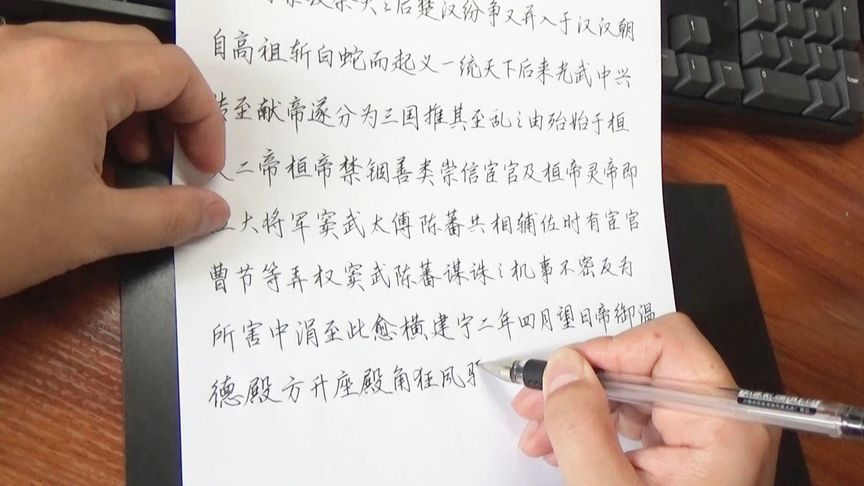 秦灭之后楚汉纷争又并入于汉汉朝
自高祖斩白蛇而起义一统天下后来光武中兴
至献帝遂分为三国推其至乱之由殆始于桓
二帝桓帝禁锢善类崇信宦官及桓帝灵帝即
大将军窦武太傅陈蕃共相辅佐时有宦官
曹节等弄权窦武陈蕃谋诛之机事不密反为
所害中涓至此愈横建宁二年四月望日帝御温
德殿方升座殿角狂风